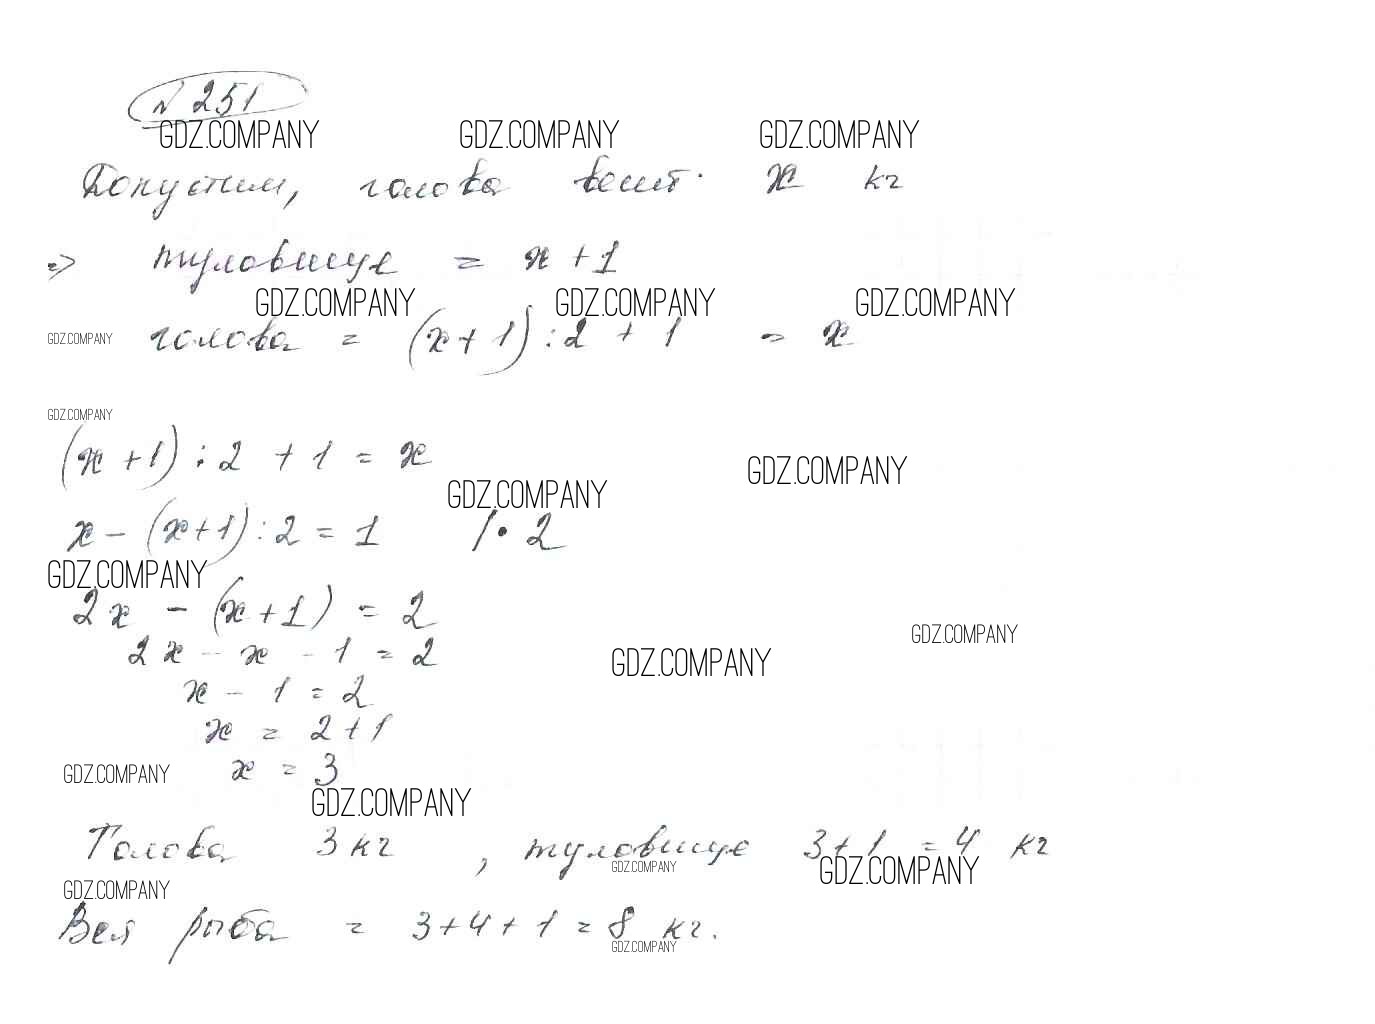 N 251
GDZ.COMPANY GDZ.COMPANY GDZ.COMPANY
Допустим, голова весит x кг
=> туловище = x + 1
GDZ.COMPANY GDZ.COMPANY GDZ.COMPANY
GDZ.COMPANY голова = (x + 1) : 2 + 1 = x
GDZ.COMPANY
(x + 1) : 2 + 1 = x
GDZ.COMPANY
GDZ.COMPANY
x - (x + 1) : 2 = 1 / · 2
GDZ.COMPANY
2x - (x + 1) = 2
GDZ.COMPANY
2x - x - 1 = 2
GDZ.COMPANY
x - 1 = 2
x = 2 + 1
GDZ.COMPANY x = 3
GDZ.COMPANY
Голова 3 кг , туловище 3 + 1 = 4 кг
GDZ.COMPANY GDZ.COMPANY
GDZ.COMPANY
Вся рыба = 3 + 4 + 1 = 8 кг.
GDZ.COMPANY